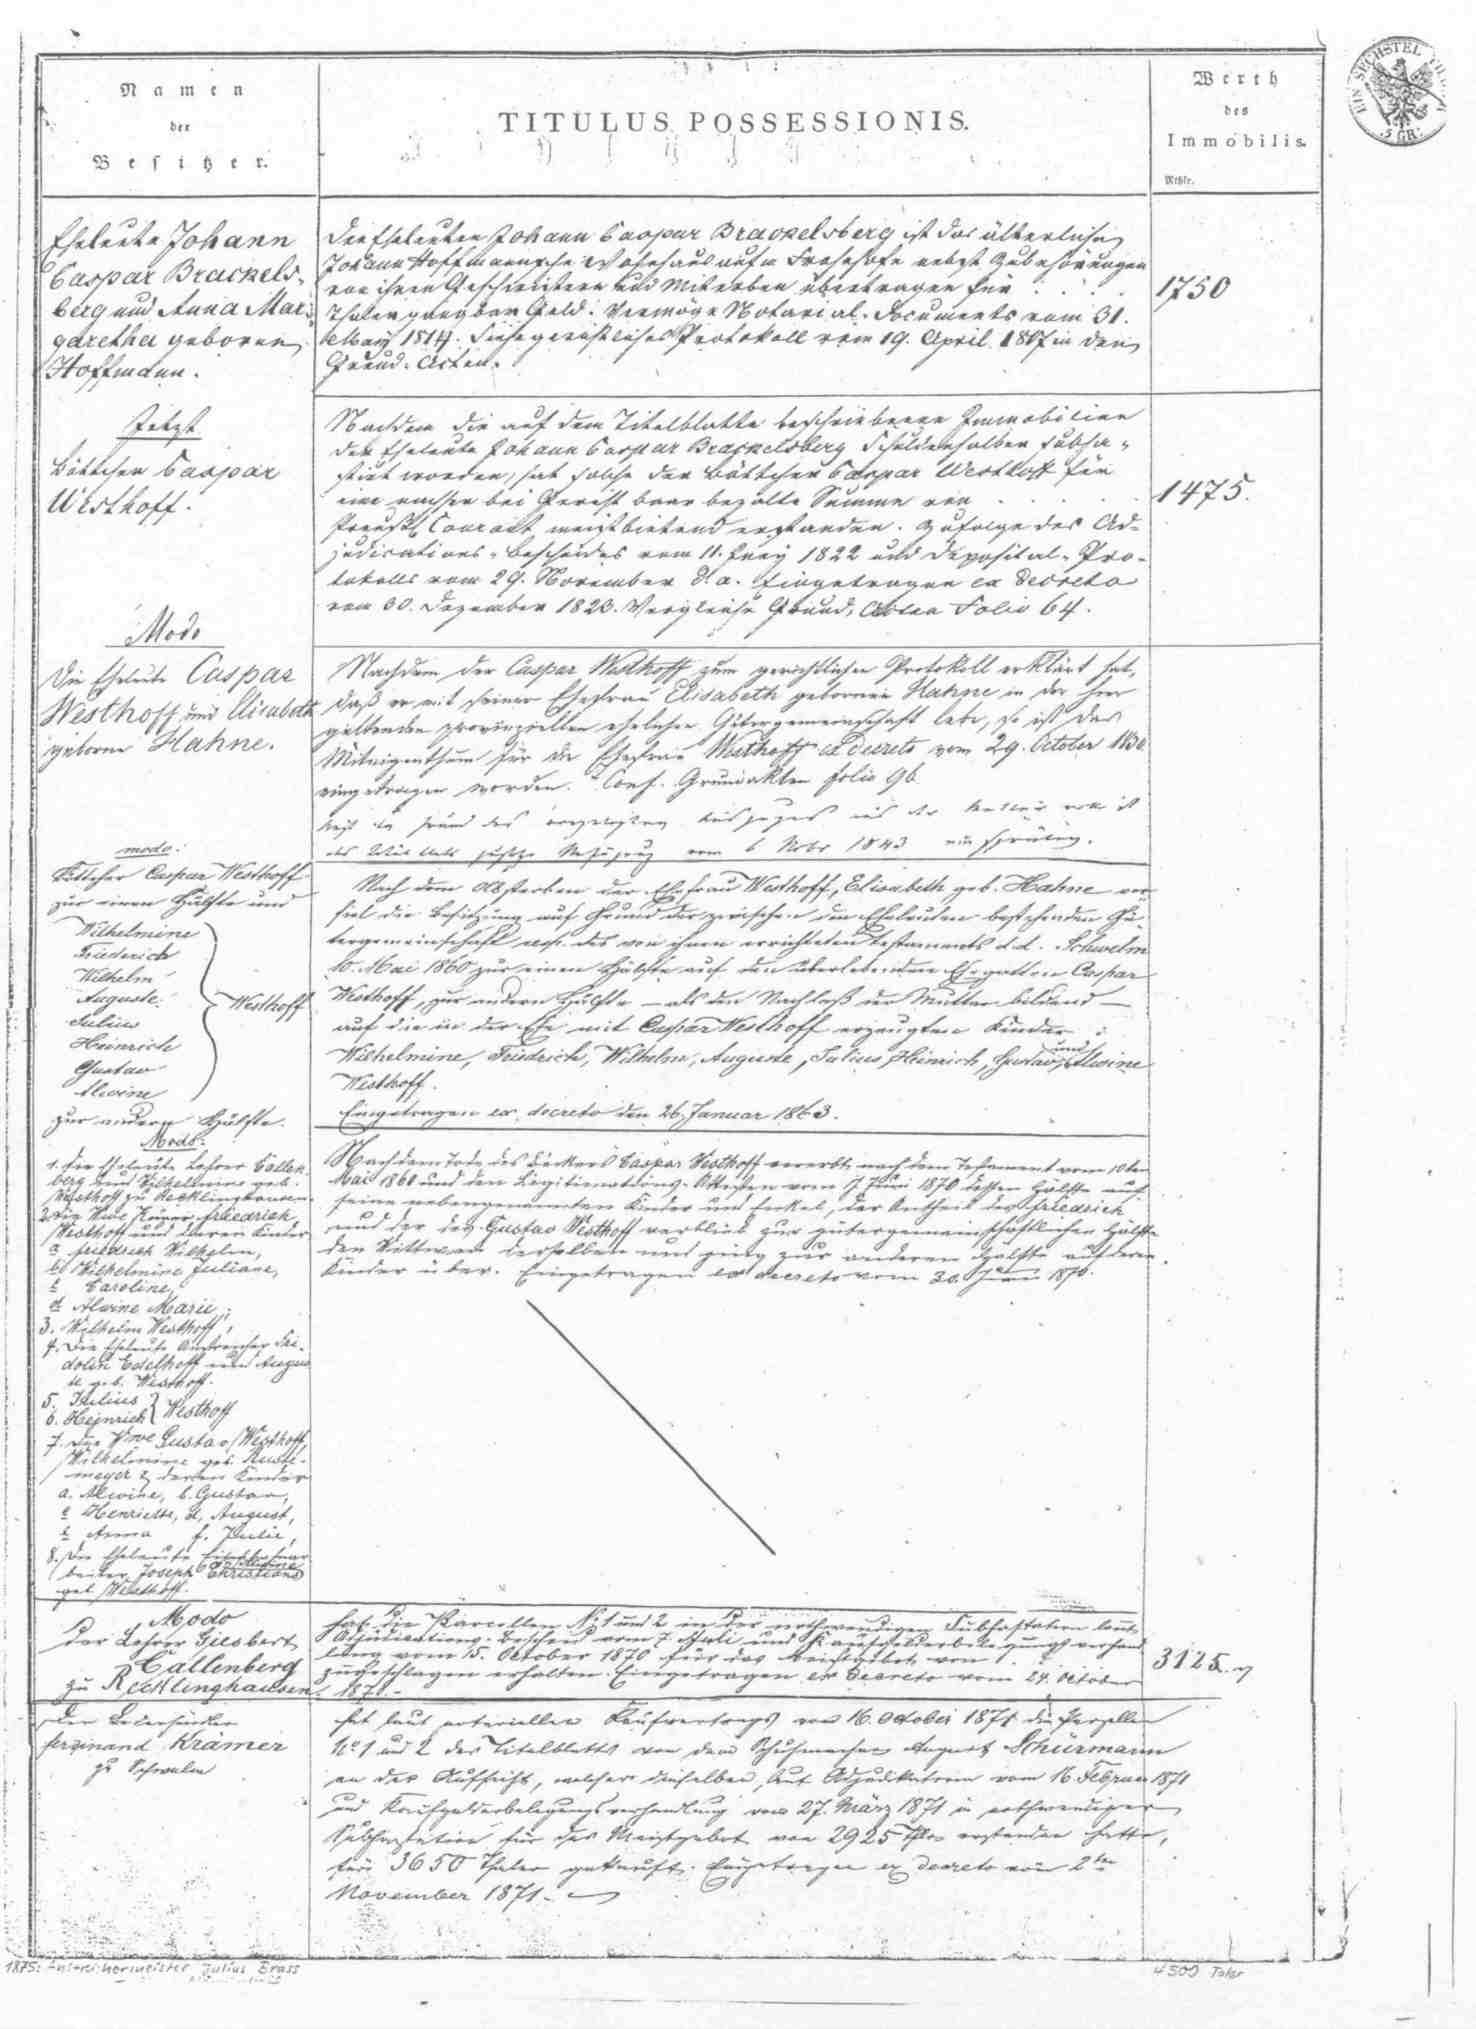 Namen
der
Besitzer.
TITULUS POSSESSIONIS.
Werth
des
Immobilis.
Rthlr.
EIN SECHSTEL
5 GR.
Eheleute Johann
Caspar Brackels-
berg und Anna Mar-
garetha geborene
Hoffmann.
Den Eheleuten Johann Caspar Brackelsberg ist das älterliche
Johann Hoffmannsche Wohnhaus aufm Frohnhofe nebst Zubehörungen
von ihren Geschwistern und Miterben übertragen für
Thaler Geld. Vermöge Notarial-Documents vom 31.
May 1814. Protokoll vom 19. April 1807 in den
Grund-Acten.
1750
Jetzt
Böttcher Caspar
Westhoff.
Nachdem die auf dem Titelblatte beschriebenen Immobilien
der Eheleute Johann Caspar Brackelsberg Schuldenhalber subha-
stirt worden, hat solche der Böttcher Caspar Westhoff für
eine nachher bei Gericht baar bezalte Summe von
Preuß. Courant meistbietend erstanden. Zufolge des Ad-
judications-Bescheides vom 11. Juny 1822 und Deposital-Pro-
tokolls vom 29. November d. a. Eingetragen ex decreto
vom 30. Dezember 1823. Vergleiche Grund-Acten Folio 64.
1475.
Modo
Die Eheleute Caspar
Westhoff und Elisabeth
geborne Hahne.
Nachdem der Caspar Westhoff zum gerichtlichen Protokoll erklärt hat,
daß er mit seiner Ehefrau Elisabeth gebornen Hahne in der hier
geltenden provinziellen ehelichen Gütergemeinschaft lebe, so ist das
Miteigenthum für die Ehefrau Westhoff ex decreto vom 29. October 1830
eingetragen worden. Conf. Grundakten folio 96
des vom 6 Nobr 1843
modo:
Böttcher Caspar Westhoff
zur einen Hälfte und
Wilhelmine
Friederich
Wilhelm
Auguste
Julius
Heinrich
Gustav
Alwine
Westhoff
zur andern Hälfte.
Nach dem Absterben der Ehefrau Westhoff, Elisabeth geb. Hahne ver-
fiel die Besitzung auf Grund der zwischen den Eheleuten bestehenden Gü-
tergemeinschaft resp. des von ihnen errichteten Testaments d.d. Schwelm
10. Mai 1860 zur einen Hälfte auf den überlebenden Ehegatten Caspar
Westhoff, zur andern Hälfte — als den Nachlaß der Mutter bildend —
auf die in der Ehe mit Caspar Westhoff erzeugten Kinder:
Wilhelmine, Friedrich, Wilhelm, Auguste, Julius, Heinrich, Gustav, und Alwine
Westhoff.
Eingetragen ex decreto den 26. Januar 1863.
Modo:
1. Die Eheleute Lehrer Callen-
berg und Wilhelmine geb.
Westhoff zu Recklinghausen
2. Die Wwe Friedrich
Westhoff und deren Kinder
a. Friedrich Wilhelm,
b. Wilhelmine Juliane,
c. Caroline,
d. Alwine Marie,
3. Wilhelm Westhoff,
4. Die Eheleute Anstreicher Fri-
dolin Edelhoff und Augus-
te geb. Westhoff.
5. Julius
6. Heinrich
Westhoff
7. Die Wwe Gustav Westhoff,
Wilhelmine geb. Ruste-
meyer & deren Kinder
a. Alwine, b. Gustav,
c. Henriette, d. August,
e. Anna f. Julie,
8. Die Eheleute
Joseph Christians Alwine
geb. Westhoff.
Nach dem Tode des Bäckers Caspar Westhoff vererbte nach dem Testament vom 10ten
Mai 1860 und den Legitimations-Attesten vom 17 Juni 1870 dessen Hälfte auf
seine nebengenannten Kinder und Enkel, der Antheil des Friedrich
und der des Gustav Westhoff verblieb zur gütergemeinschaftlichen Hälfte
den Wittwen derselben und ging zur anderen Hälfte auf deren
Kinder über. Eingetragen ex decreto vom 30. Juni 1870.
Modo
Der Lehrer Giesbert
Callenberg
zu Recklinghausen
hat die Parcellen No 1 und 2 in der nothwendigen Subhastation laut
Adjudications-Bescheid vom 7. Juli und Kaufgelderbelegungsverhand-
lung vom 15. October 1870 für das Meistgebot von
zugeschlagen erhalten. Eingetragen ex decreto vom 24. October
1870.
3125.
Der Lederhändler
Ferdinand Kramer
zu Schwelm
hat laut notariellen Kaufvertrags vom 16. October 1871 die Parzellen
No 1 und 2 des Titelblatts von dem Schuhmacher August Schürmann
an der Aufsicht, welcher dieselben laut Adjudikatoria vom 16. Februar 1871
und Kaufgelderbelegungsverhandlung vom 27. März 1871 in nothwendiger
Subhastation für das Meistgebot von 2925 Thlr erstanden hatte,
für 3650 Thaler gekauft. Eingetragen ex decreto vom 2ten
November 1871.
1875: Anstreichermeister Julius Brass
4500 Taler